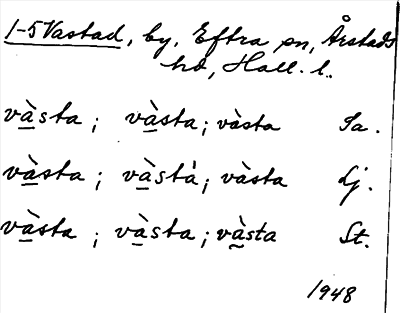 1-5 Vastad, by, Eftra sn, Årstads
hd, Hall. l.
và̠sta ; và̠sta ; vàsta Sa.
và̠sta ; và̠stà ; vàsta Lj.
và̠sta ; và̠sta ; và̰sta St.
1948